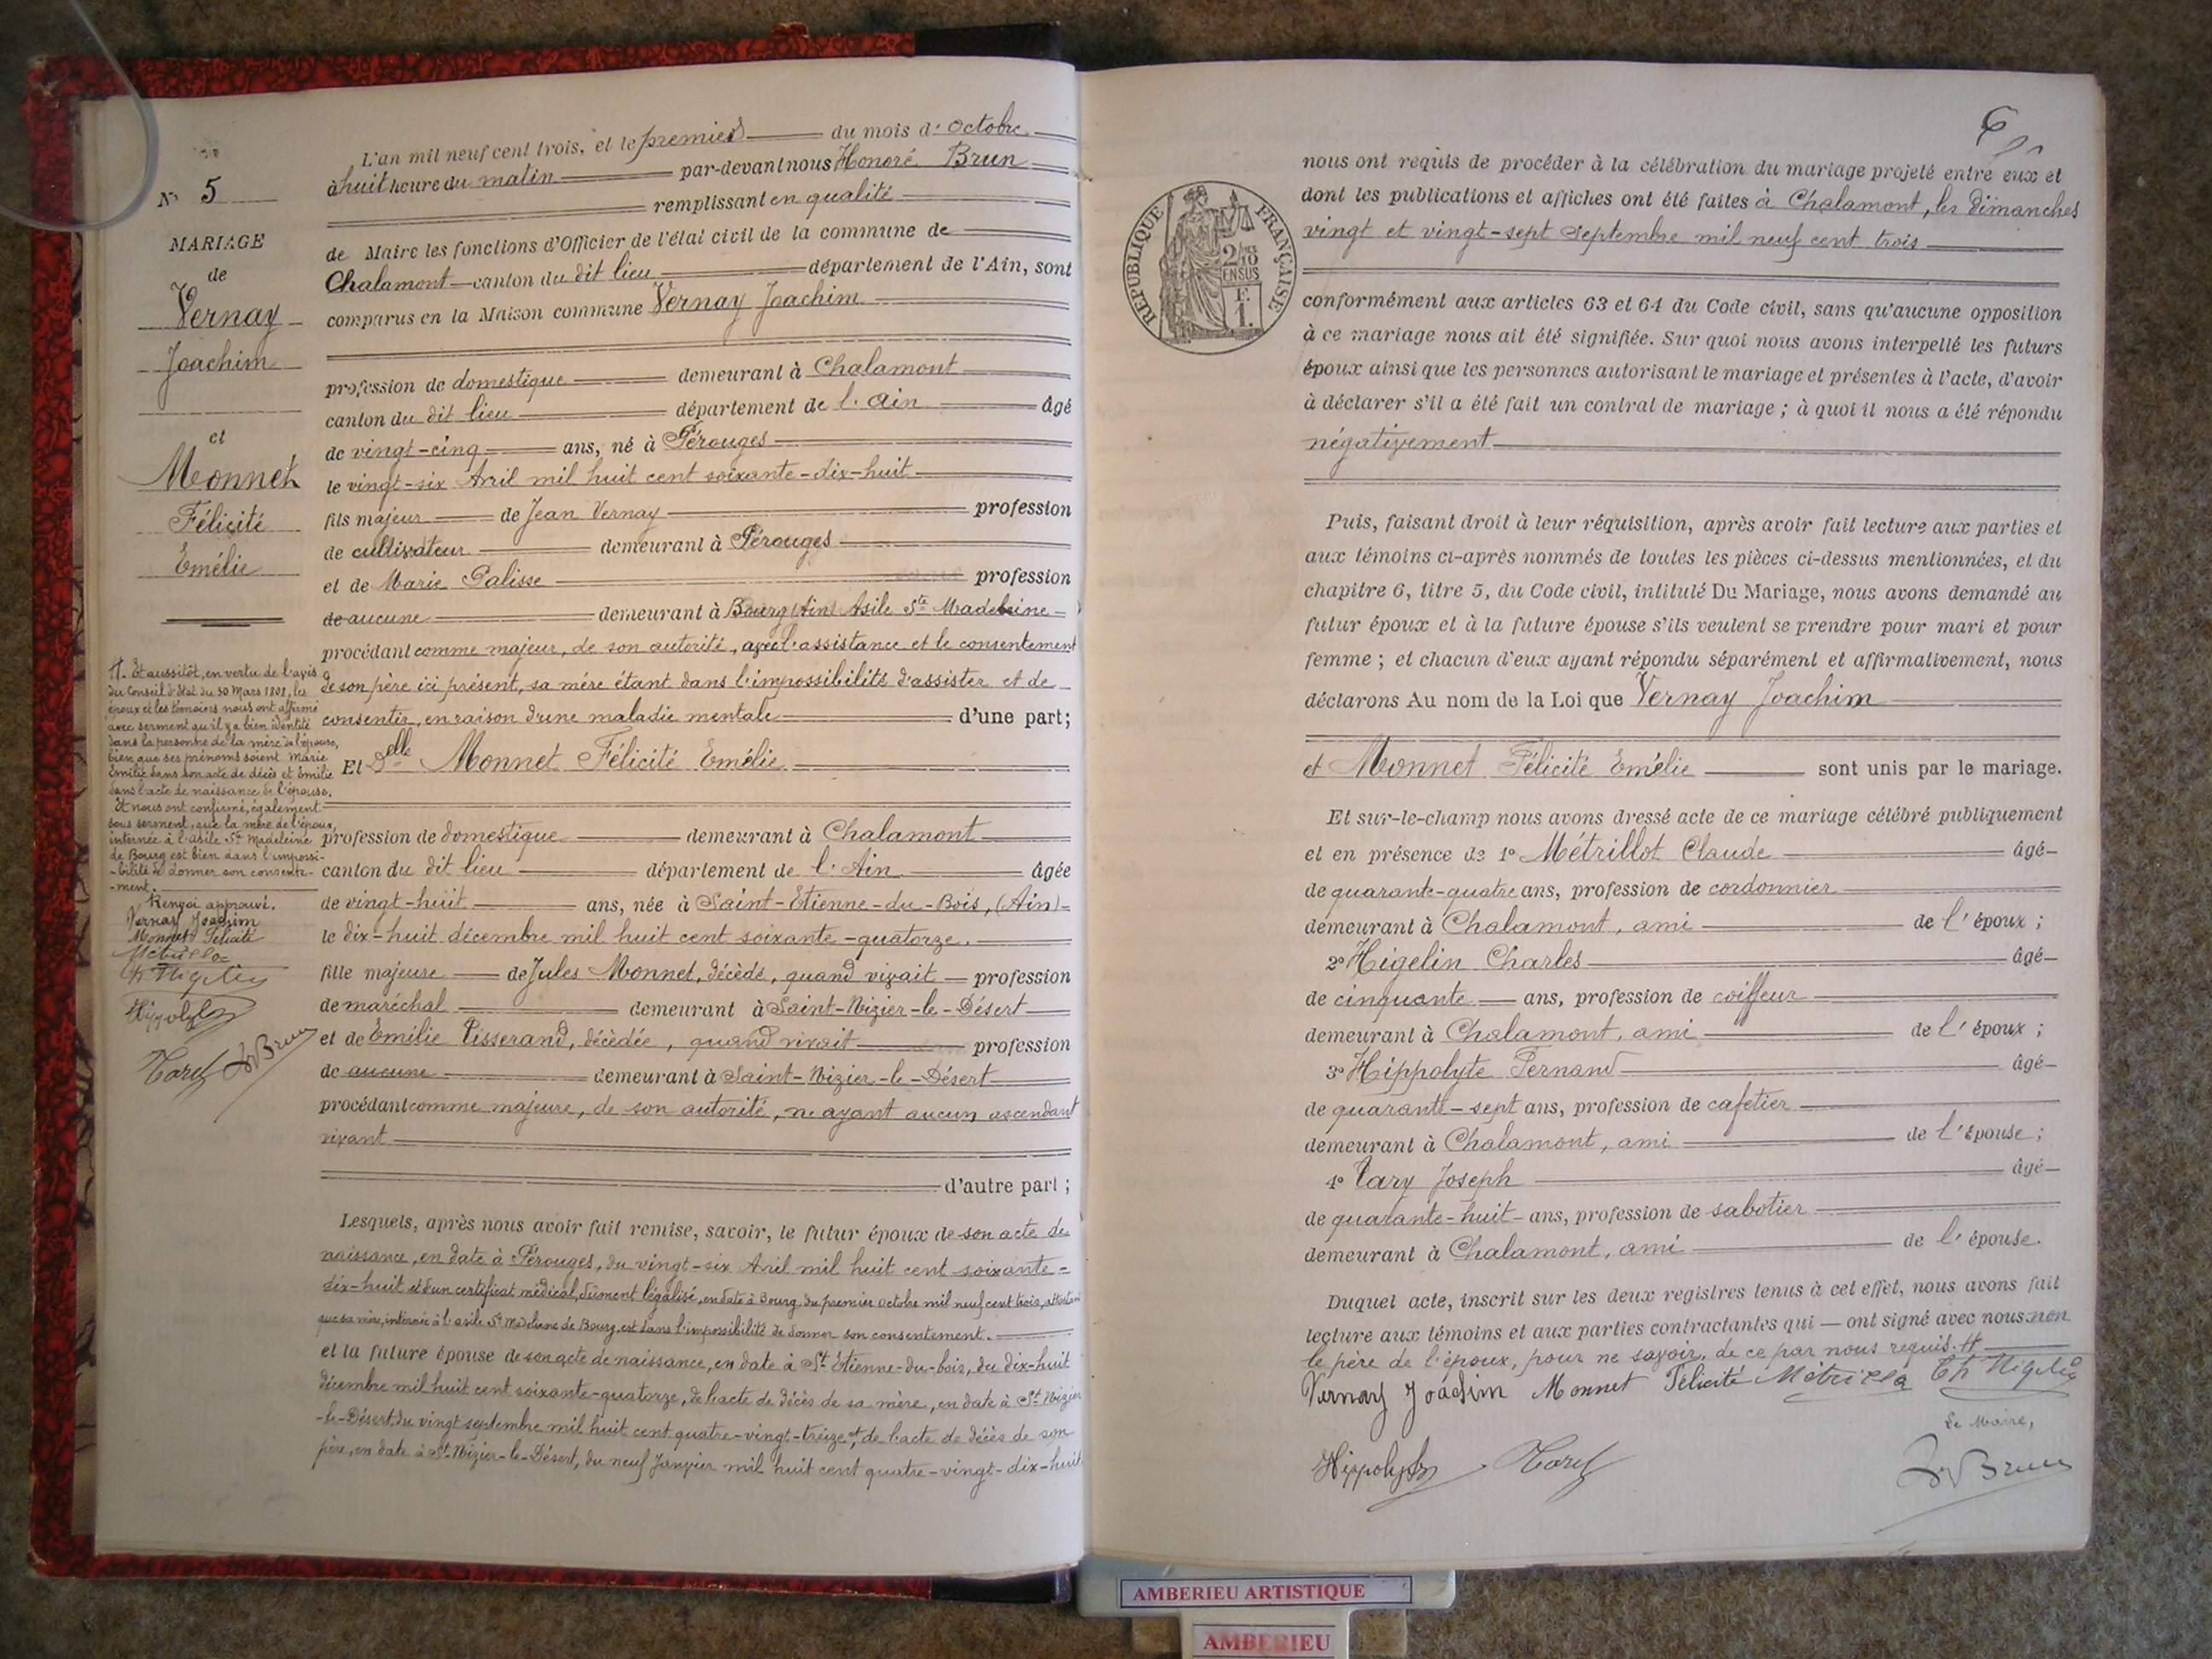 N° 5
MARIAGE
de
Vernay
Joachim
et
Monnet
Félicité
Emélie
L'an mil neuf cent trois, et le premier du mois d'Octobre
à huit heure du matin par-devant nous Honoré Brun
remplissant en qualité
de Maire les fonctions d'Officier de l'état civil de la commune de
Chalamont canton du dit lieu département de l'Ain, sont
comparus en la Maison commune Vernay Joachim
profession de domestique demeurant à Chalamont
canton du dit lieu département de l'Ain âgé
de vingt-cinq ans, né à Pérouges
le vingt-six Avril mil huit cent soixante-dix-huit
fils majeur de Jean Vernay profession
de cultivateur demeurant à Pérouges
et de Marie Palisse profession
de aucune demeurant à Bourg (Ain) Asile Ste Madeleine
procédant comme majeur, de son autorité, avec l'assistance et le consentement
de son père ici présent, sa mère étant dans l'impossibilité d'assister et de
consentir, en raison d'une maladie mentale d'une part;
Et Delle Monnet Félicité Emélie
profession de domestique demeurant à Chalamont
canton du dit lieu département de l'Ain âgée
de vingt-huit ans, née à Saint-Etienne-du-Bois, (Ain)
le dix-huit décembre mil huit cent soixante-quatorze.
fille majeure de Jules Monnet, décédé, quand vivait profession
de maréchal demeurant à Saint-Nizier-le-Désert
et de Emilie Tisserand, décédée, quand vivait profession
de aucune demeurant à Saint-Nizier-le-Désert
procédant comme majeure, de son autorité, n'ayant aucun ascendant
vivant
d'autre part;
Lesquels, après nous avoir fait remise, savoir, le futur époux de son acte de
naissance, en date à Pérouges, du vingt-six Avril mil huit cent soixante-
dix-huit et d'un certificat médical, dûment légalisé, en date à Bourg, du premier octobre mil neuf cent trois, attestant
que sa mère, internée à l'asile Ste Madeleine de Bourg, est dans l'impossibilité de donner son consentement.
et la future épouse de son acte de naissance, en date à St Etienne-du-bois, du dix-huit
décembre mil huit cent soixante-quatorze, de l'acte de décès de sa mère, en date à St Nizier
-le-Désert, du vingt septembre mil huit cent quatre-vingt-treize et de l'acte de décès de son
père, en date à St Nizier-le-Désert, du neuf Janvier mil huit cent quatre-vingt-dix-huit
Et aussitôt, en vertu de l'avis
du Conseil d'Etat du 30 Mars 1808, les
époux et les témoins nous ont affirmé
avec serment qu'il y a bien identité
dans la personne de la mère de l'épouse,
bien que ses prénoms soient Marie
Emilie dans son acte de décès et Emilie
dans l'acte de naissance de l'épouse.
Et nous ont confirmé, également
sous serment, que la mère de l'époux,
internée à l'asile Ste Madeleine
de Bourg est bien dans l'impossi-
-bilité de donner son consente-
-ment.
Renvoi approuvé.
Vernay Joachim
Monnet Félicité
Ch Higelin
Hippolyte
Brun
6
RÉPUBLIQUE FRANÇAISE
nous ont requis de procéder à la célébration du mariage projeté entre eux et
dont les publications et affiches ont été faites à Chalamont, les dimanches
vingt et vingt-sept Septembre mil neuf cent trois
conformément aux articles 63 et 64 du Code civil, sans qu'aucune opposition
à ce mariage nous ait été signifiée. Sur quoi nous avons interpellé les futurs
époux ainsi que les personnes autorisant le mariage et présentes à l'acte, d'avoir
à déclarer s'il a été fait un contrat de mariage; à quoi il nous a été répondu
négativement
Puis, faisant droit à leur réquisition, après avoir fait lecture aux parties et
aux témoins ci-après nommés de toutes les pièces ci-dessus mentionnées, et du
chapitre 6, titre 5, du Code civil, intitulé Du Mariage, nous avons demandé au
futur époux et à la future épouse s'ils veulent se prendre pour mari et pour
femme; et chacun d'eux ayant répondu séparément et affirmativement, nous
déclarons Au nom de la Loi que Vernay Joachim
et Monnet Félicité Emélie sont unis par le mariage.
Et sur-le-champ nous avons dressé acte de ce mariage célébré publiquement
et en présence de 1° Métrillot Claude âgé
de quarante-quatre ans, profession de cordonnier
demeurant à Chalamont, ami de l'époux;
2° Higelin Charles âgé
de cinquante ans, profession de coiffeur
demeurant à Chalamont, ami de l'époux;
3° Hippolyte Fernand âgé
de quarante-sept ans, profession de cafetier
demeurant à Chalamont, ami de l'épouse;
4° Tary Joseph âgé
de quarante-huit ans, profession de sabotier
demeurant à Chalamont, ami de l'épouse.
Duquel acte, inscrit sur les deux registres tenus à cet effet, nous avons fait
lecture aux témoins et aux parties contractantes qui ont signé avec nous non
le père de l'époux, pour ne savoir, de ce par nous requis.
Vernay Joachim Monnet Félicité Ch Higelin
Le Maire,
Hippolyte
Brun
AMBERIEU ARTISTIQUE
AMBERIEU